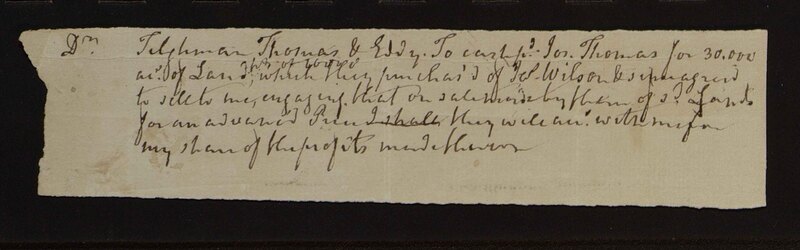 Dr. Tilghman Thomas & Eddy. To cash pd. Jos. Thomas for 30.000
as. of Land, which they purchas'd of Js. Wilson & since agreed
to sell to me, engaging that on sale made by them of sd. Lands
for an advanc'd Price I shall they will act. with me for
my share of the profits made thereon